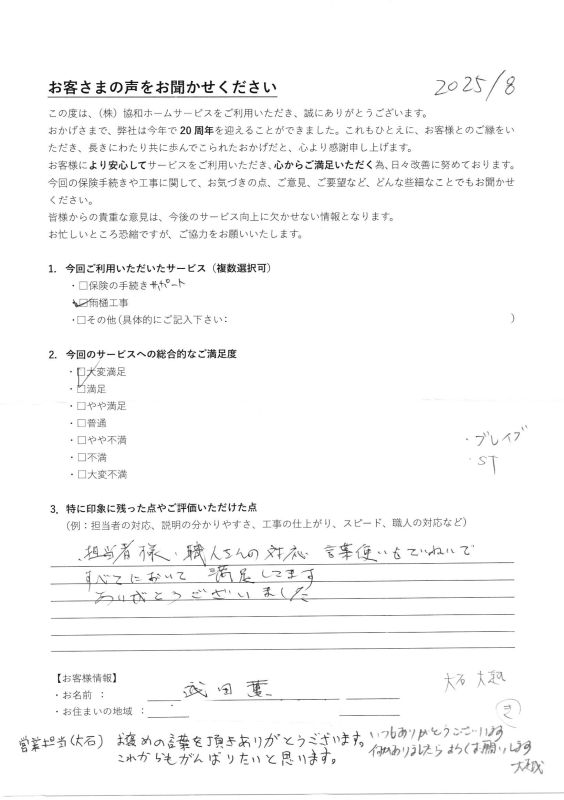 お客さまの声をお聞かせください
2025/8
この度は、（株）協和ホームサービスをご利用いただき、誠にありがとうございます。
おかげさまで、弊社は今年で20周年を迎えることができました。これもひとえに、お客様とのご縁をい
ただき、長きにわたり共に歩んでこられたおかげだと、心より感謝申し上げます。
お客様により安心してサービスをご利用いただき、心からご満足いただく為、日々改善に努めております。
今回の保険手続きや工事に関して、お気づきの点、ご意見、ご要望など、どんな些細なことでもお聞かせ
ください。
皆様からの貴重な意見は、今後のサービス向上に欠かせない情報となります。
お忙しいところ恐縮ですが、ご協力をお願いいたします。
1. 今回ご利用いただいたサービス（複数選択可）
・□保険の手続きサポート
・□雨樋工事
・□その他（具体的にご記入下さい： ）
2. 今回のサービスへの総合的なご満足度
・□大変満足
・□満足
・□やや満足
・□普通
・□やや不満
・□不満
・□大変不満
・ブレイブ
・ST
3. 特に印象に残った点やご評価いただけた点
（例：担当者の対応、説明の分かりやすさ、工事の仕上がり、スピード、職人の対応など）
担当者様・職人さんの対応 言葉使いもていねいで
すべてにおいて 満足してます
ありがとうございました
【お客様情報】
・お名前 ： 武田薫
・お住まいの地域 ：
大石
き
営業担当（大石） お褒めの言葉を頂きありがとうございます。
これからもがんばりたいと思います。
いつもありがとうございます
何かありましたらよろしくお願いします